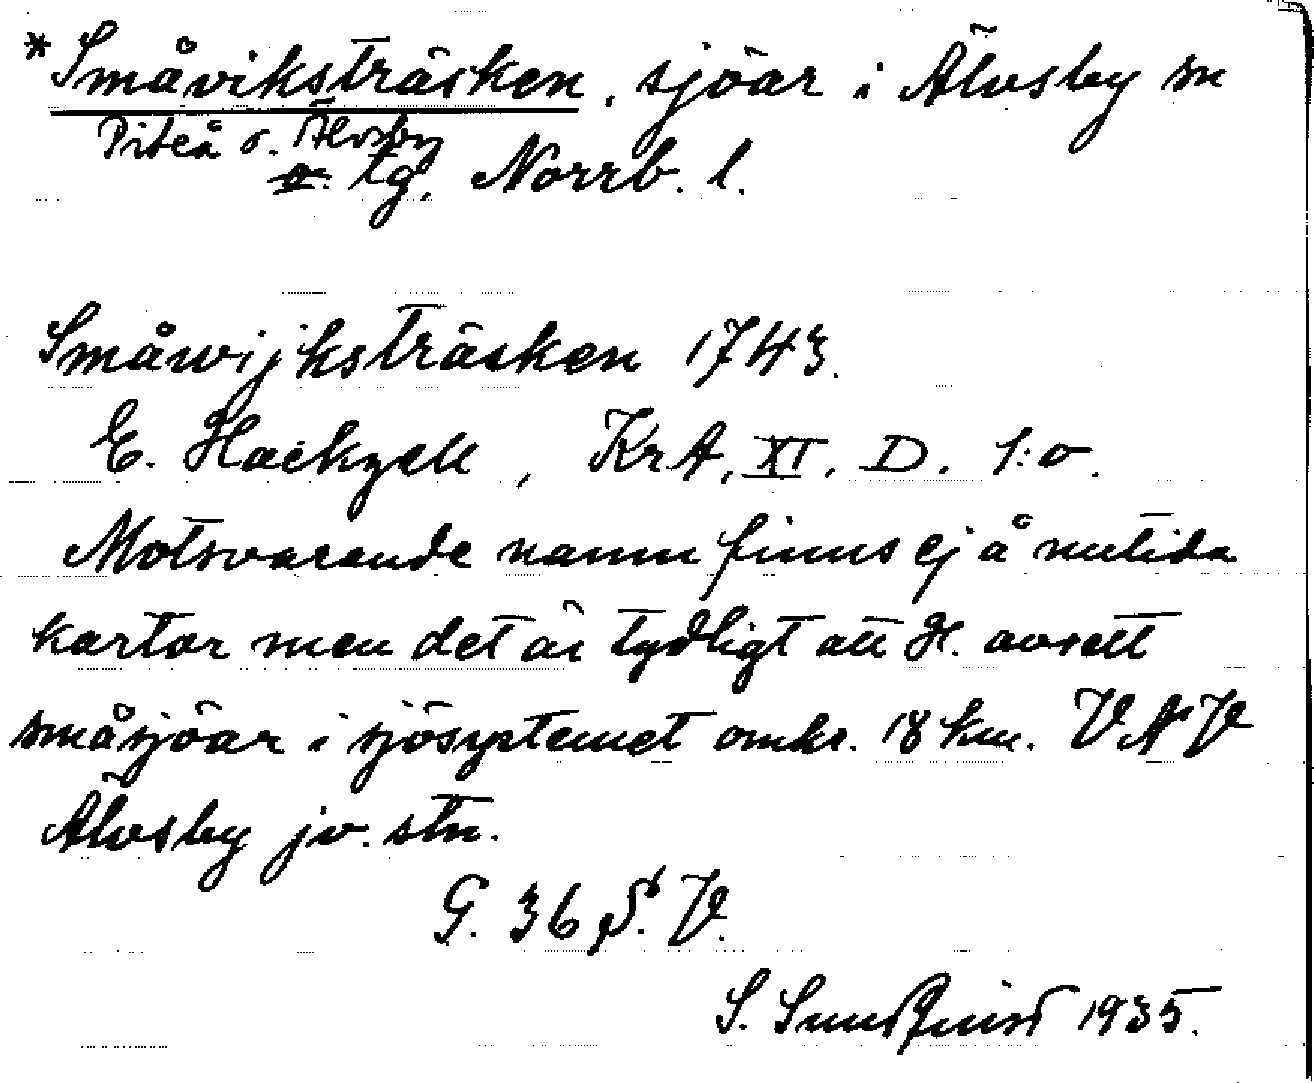 *Småviksträsken, sjöar i Älvsby sn
Piteå o. Älvsby
tg, Norrb. l.
Småwijksträsken 1743.
E. Hackzell, KrA, XI. D. 1:o.
Motsvarande namn finns ej å nutida
kartor men det är tydligt att H. avsett
småsjöar i sjösystemet omkr. 18 km. VNV
Älvsby jv. stn.
G. 36 S. V.
S. Sundquist 1935.